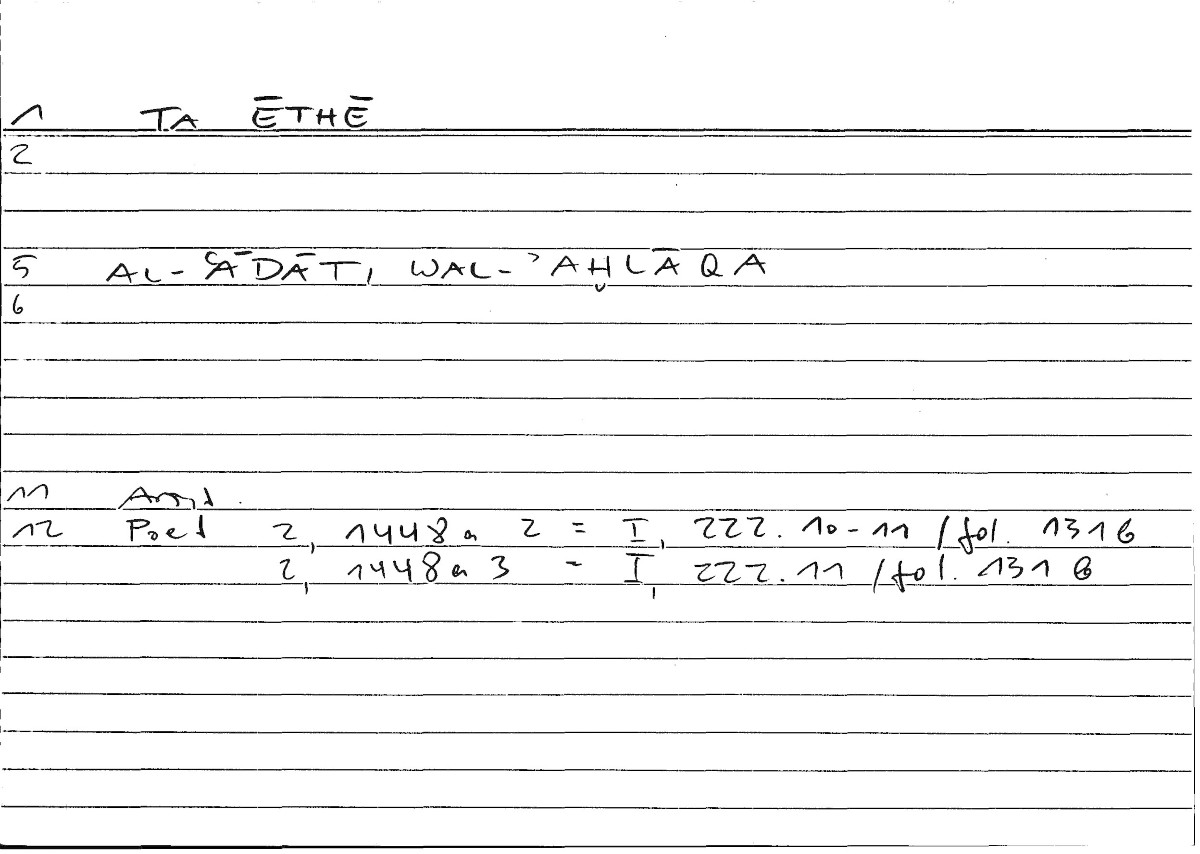 1 TA ĒTHĒ
2
5 AL-ʿĀDĀTI WAL-ʾAḪLĀQA
6
11 Arist.
12 Poet 2, 1448a 2 = I, 222.10-11 / fol. 131b
2, 1448a 3 = I, 222.11 / fol. 131b